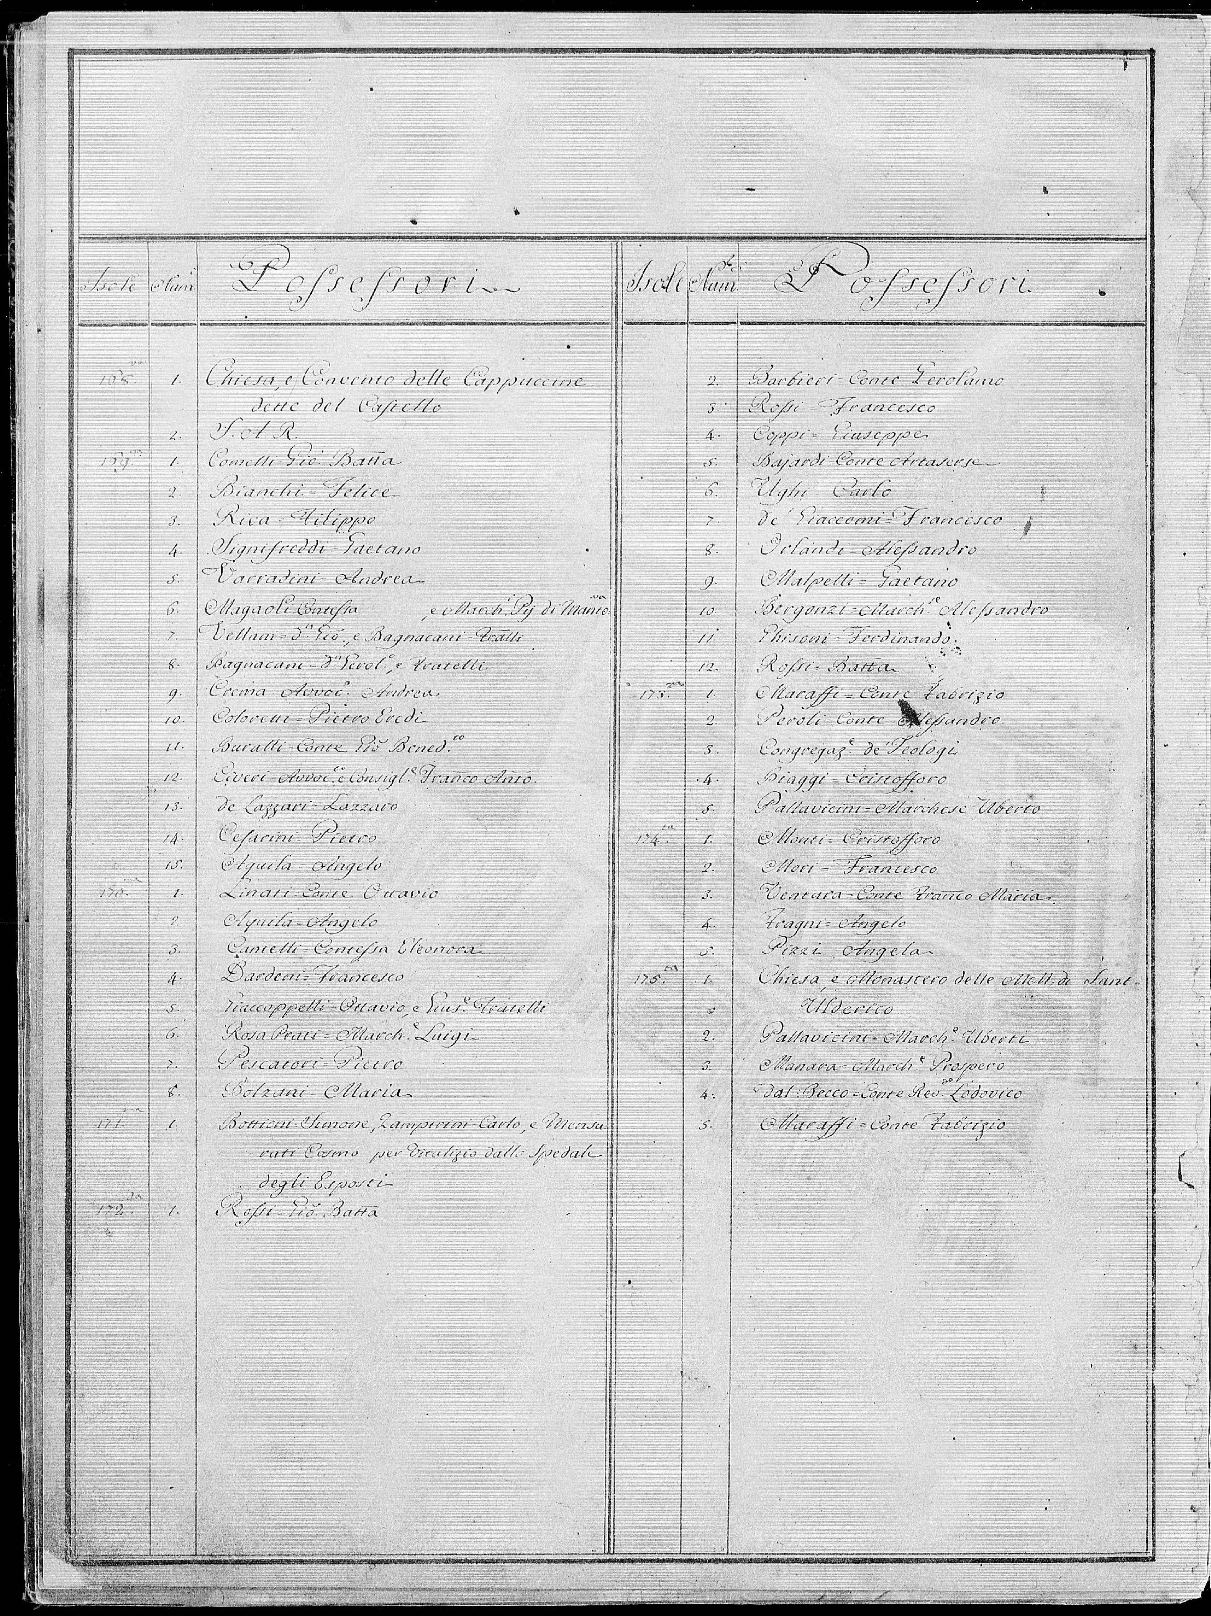 Isole Num.º Possessori
168.va 1. Chiesa, e Convento delle Cappuccine
dette del Castello
2. S. A. R.
169.na 1. Cometti Gio. Batta
2. Bianchi = Felice
3. Riva = Filippo
4. Signifreddi = Gaetano
5. Varradini = Andrea
6. Magaoli Contessa e March. Pij di
7. Vettani = D.n Gio., e Bagnacani = Fratti
8. Bagnacani = D.n Gerol.º, e Fratelli
9. Crema = Avvoc.º Andrea
10. Coloretti = Pietro Eredi
11. Buralli = Conte Gio. Bened.to
12. Civeri = Avvoc.to, e Consigl.e Franco Anto.
13. de Lazzari = Lazzaro
14. Cesarini = Pietro
15. Aquila = Angelo
170. 1. Linati = Conte Ottavio
2. Aquila = Angelo
3. Cantelli = Contessa Eleonora
4. Dardeni = Francesco
5. Ottavio, e Gius.e Fratelli
6. Rosa Prati = March.e Luigi
7. Pescatori = Pietro
8. Bolzani = Maria
171. 1. Botticni = Simone, Zamperini Carlo, e Mensu
rati Cosmo per Vitalizio dall. Spedale
degli Esposti
172.da 1. Rossi = Gio. Batta
Isole Num.º Possessori
2. Barbieri = Conte Gerolamo
3. Rossi = Francesco
4. Coppi = Giuseppe
5. Bajardi Conte Artaserse
6. Ughi Carlo
7. de' Giacomi = Francesco
8. Orlandi = Alessandro
9. Malpelli = Gaetano
10. Bergonzi = March.e Alessandro
11. Ghisoni = Ferdinando
12. Rossi = Batta
173.za 1. Maraffi = Conte Fabrizio
2. Peroli Conte Alessandro
3. Congregaz.e de' Teologi
4. Biaggi = Cristofforo
5. Pallavicini = Marchese Uberto
174.ta 1. Monti = Cristofforo
2. Mori = Francesco
3. Ventura = Conte Franco Maria
4. Fragni = Angelo
5. Pizzi Angela
175.ta 1. Chiesa, e Monastero delle Mott. di Sant'
Ulderico
2. Pallavicini = March.e Uberti
3. Manara = March.e Prospero
4. Dal Becco = Conte Rev.do Lodovico
5. Maraffi = Conte Fabrizio